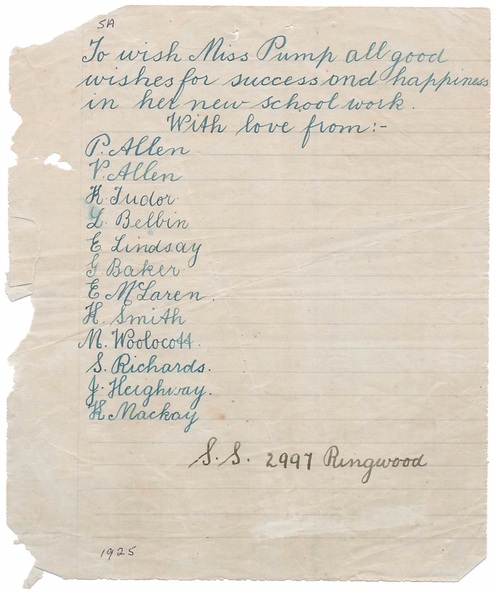 5A
To wish Miss Pump all good
wishes for success and happiness
in her new school work.
With love from:-
P. Allen
V. Allen
H Tudor
L. Belbin
E Lindsay
G Baker
E McLaren.
H. Smith
M. Woolocott.
S. Richards.
J. Heighway.
H Mackay
S. S. 2997 Ringwood
1925